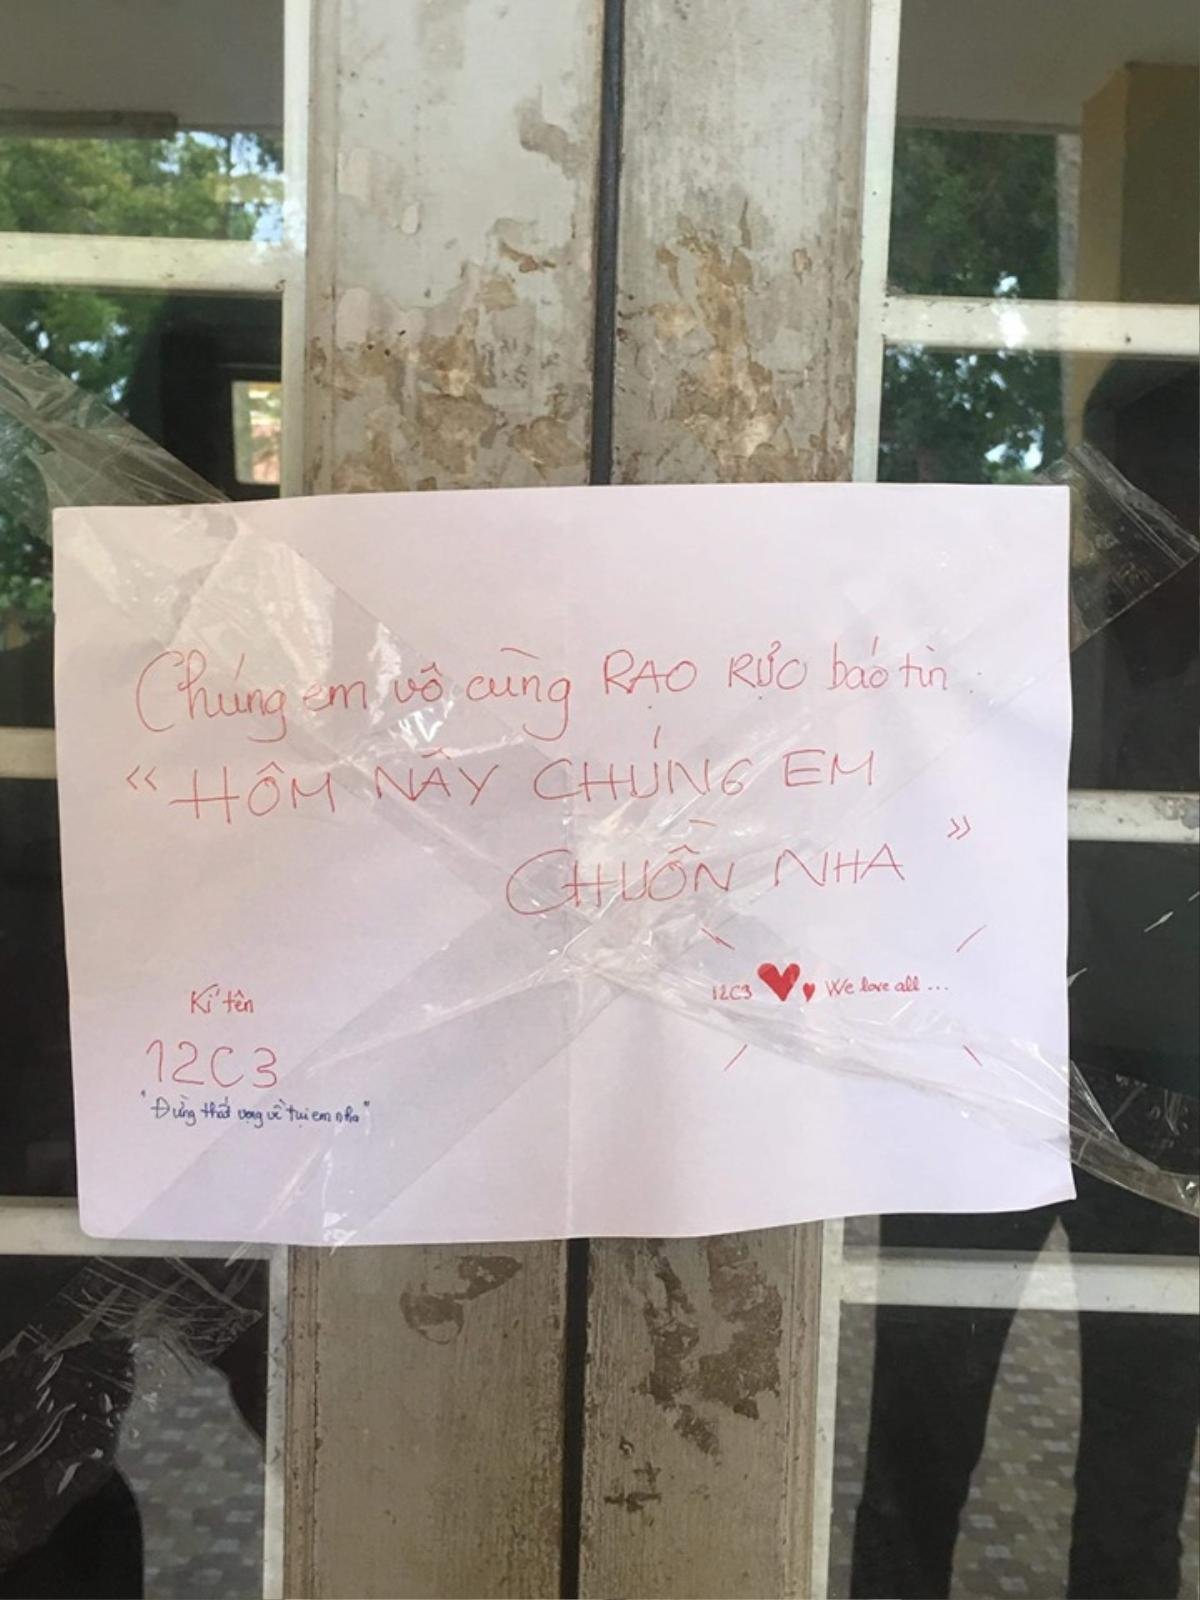 Chúng em vô cùng RẠO RỰC báo tin :
" HÔM NÃY CHÚNG EM
CHUỒN NHA "
12C3 We love all ...
Kí tên
12C3
"Đừng thất vọng về tụi em nha"